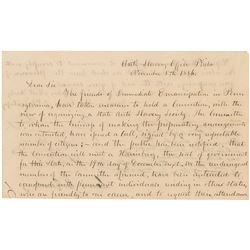 Anti-Slavery Office, Phila
November 5th 1836.
Dear Sir
The friends of Immediate Emancipation in Penn-
sylvania, have taken measures to hold a Convention, with the
view of organizing a state Anti Slavery Society. The Committee
to whom the business of making the preparatory arrangements
was entrusted, have issued a call, signed by a very respectable
number of citizens; and the public have been notified, that
the Convention will meet at Harrisburg, the seat of government
for this State, on the 19th day of December next. We the undersigned
members of the Committee aforesaid, have been instructed to
correspond with prominent individuals residing in other States,
who are friendly to our cause, and to request their attendance